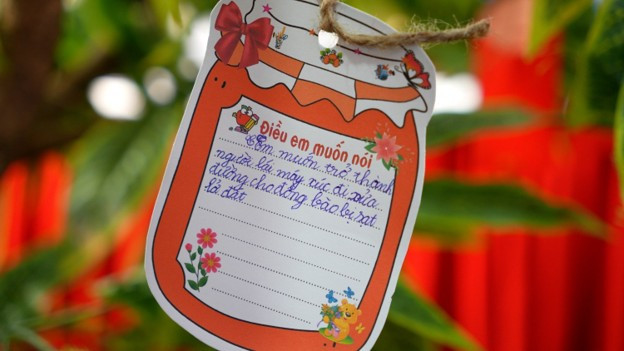 Điều em muốn nói
Em muốn trở thành
người lái máy xúc đi sửa
đường cho đồng bào bị sạt
lở đất